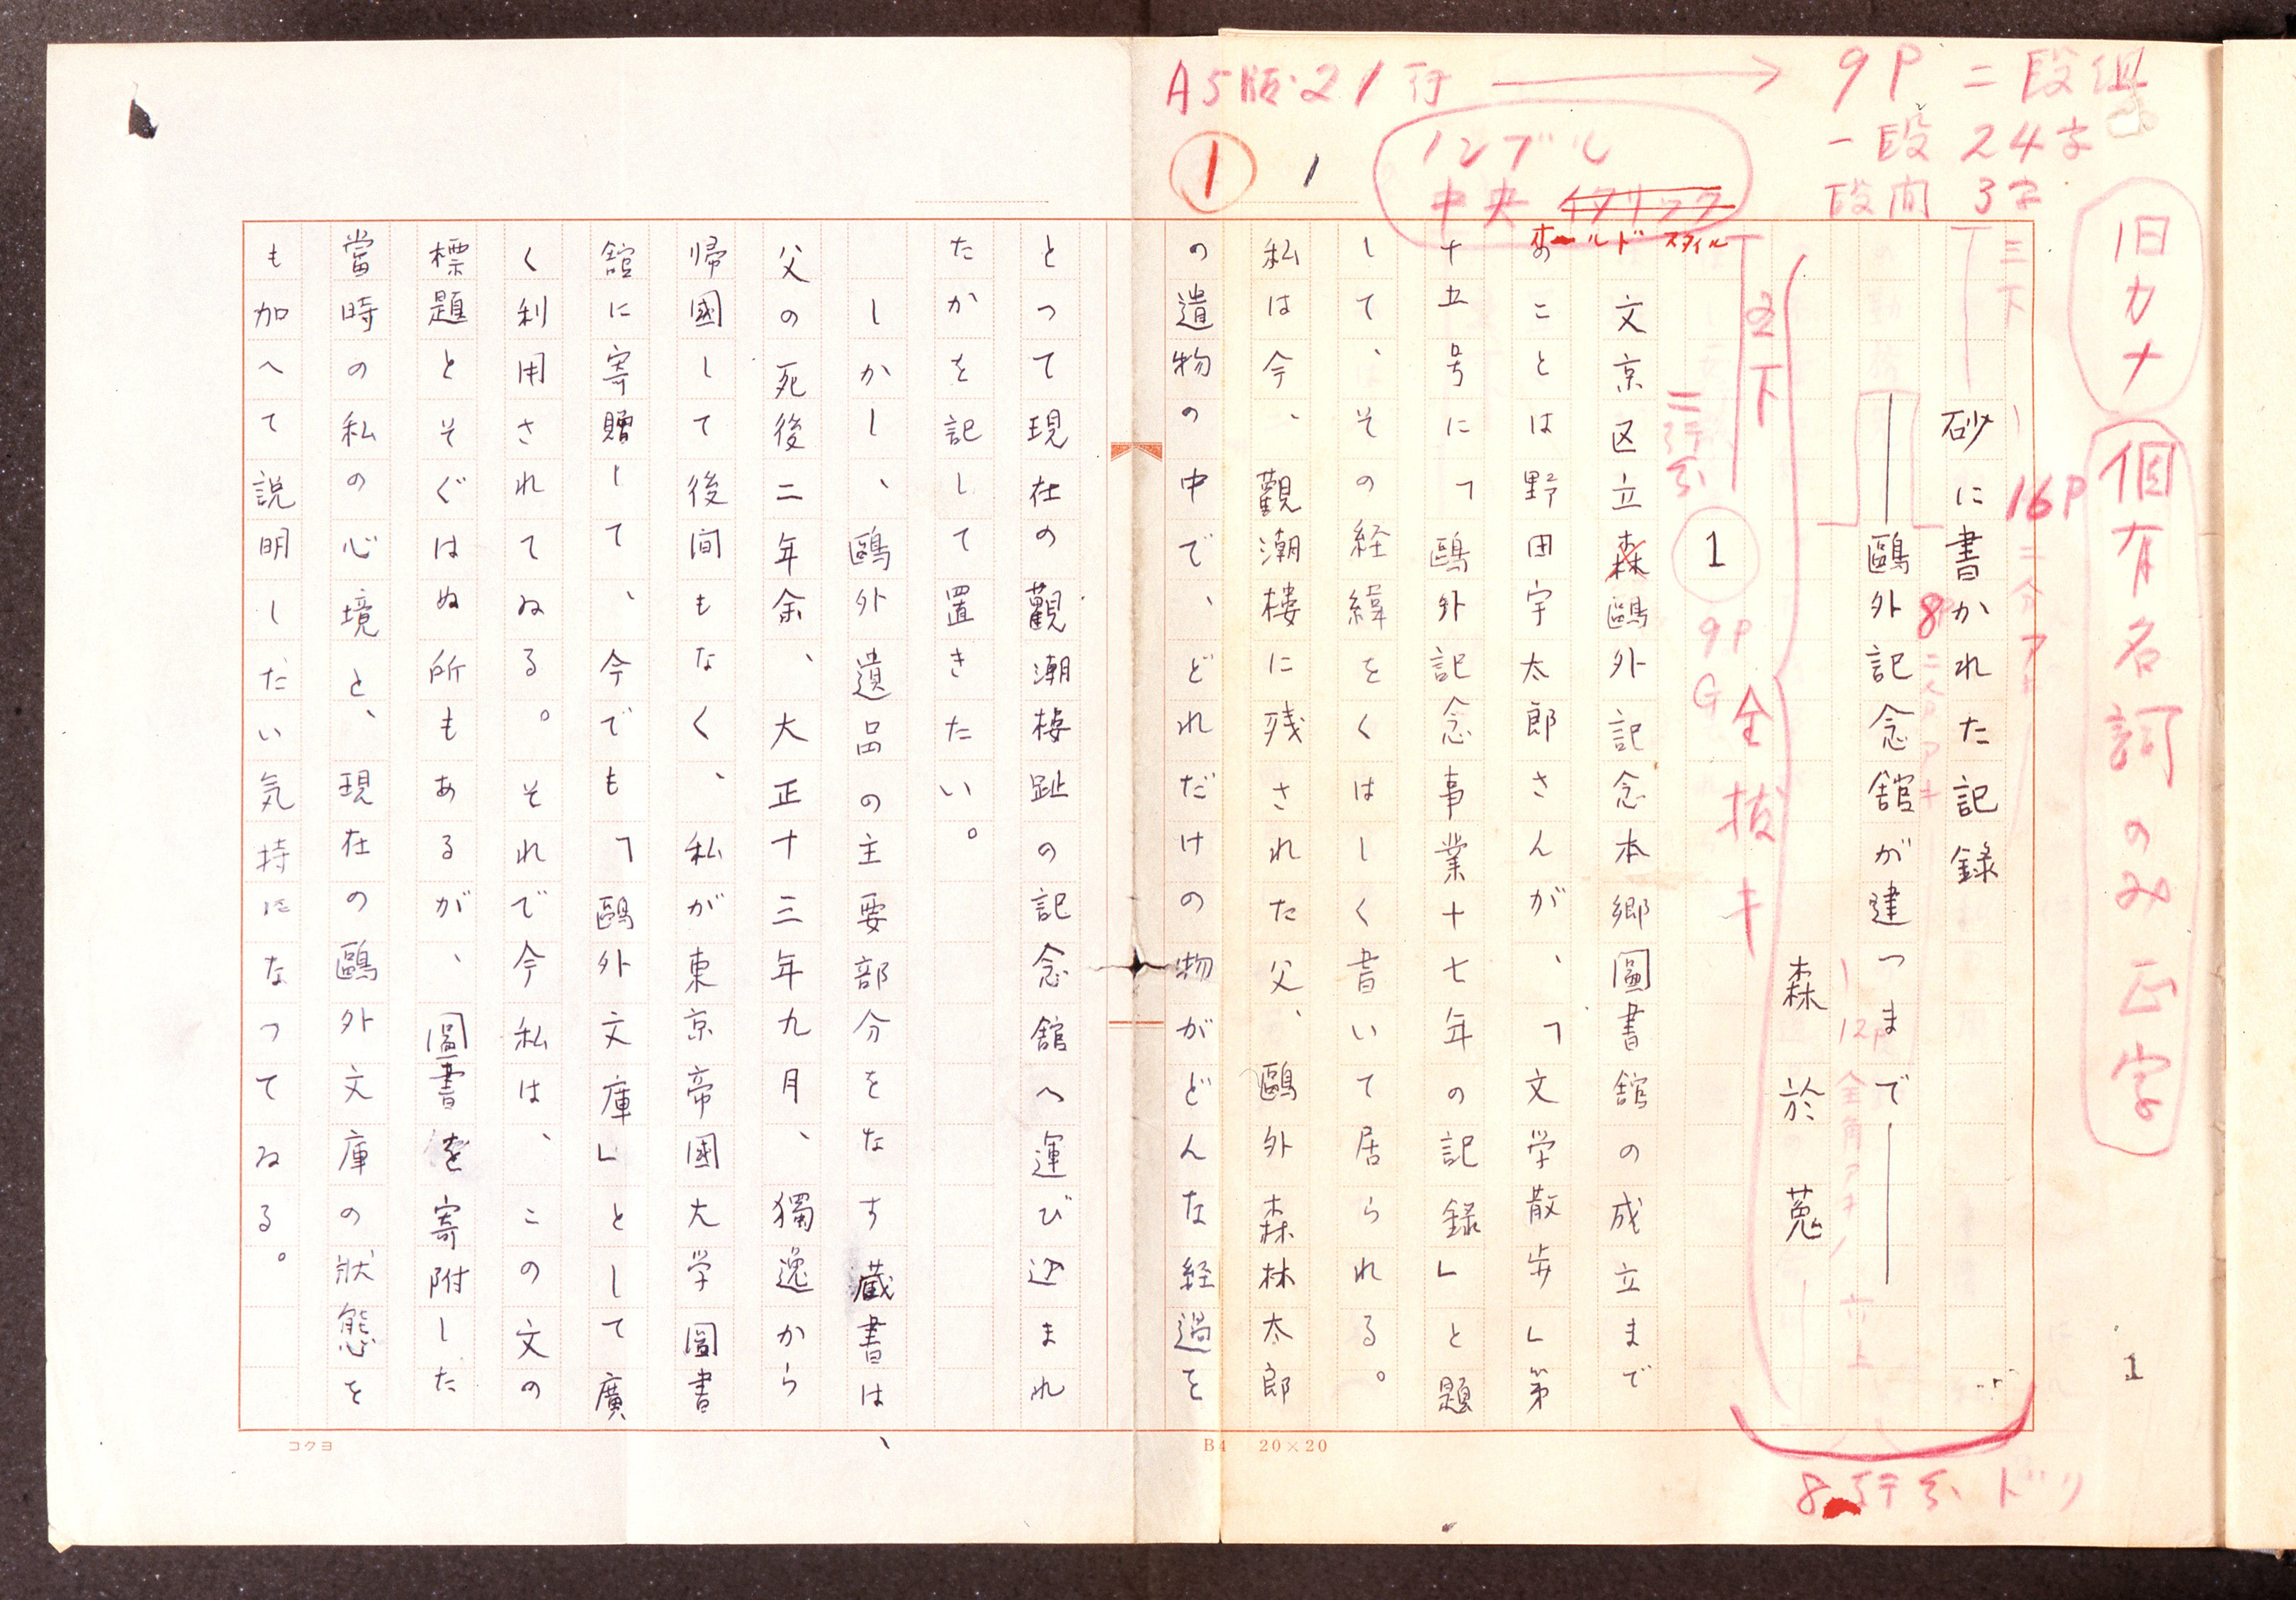 A5版・21行
9P 二段組
一段 24字
段間 3字
ノンブル
中央 イタリック
オールド スタイル
1
1
旧カナ
個有名詞のみ正字
三下
砂に書かれた記録
16P
二分アキ
――鷗外記念館が建つまで――
森 於 菟
12P
全角アキ
全抜キ
二行分
1
9P
G
文京区立森鷗外記念本郷圖書舘の成立まで
のことは野田宇太郎さんが、「文学散歩」第
十五号に「鷗外記念事業十七年の記録」と題
して、その経緯をくはしく書いて居られる。
私は今、觀潮楼に残された父、鷗外森林太郎
の遺物の中で、どれだけの物がどんな経過を
とって現在の觀潮楼趾の記念舘へ運び込まれ
たかを記して置きたい。
しかし、鷗外遺品の主要部分をなす蔵書は、
父の死後二年余、大正十三年九月、獨逸から
帰國して後間もなく、私が東京帝國大学圖書
舘に寄贈して、今でも「鷗外文庫」として廣
く利用されてゐる。それで今私は、この文の
標題とそぐはぬ所もあるが、圖書を寄附した
當時の私の心境と、現在の鷗外文庫の状態を
も加へて説明したい気持になってゐる。
8行分ドリ
1
コクヨ
B4 20×20